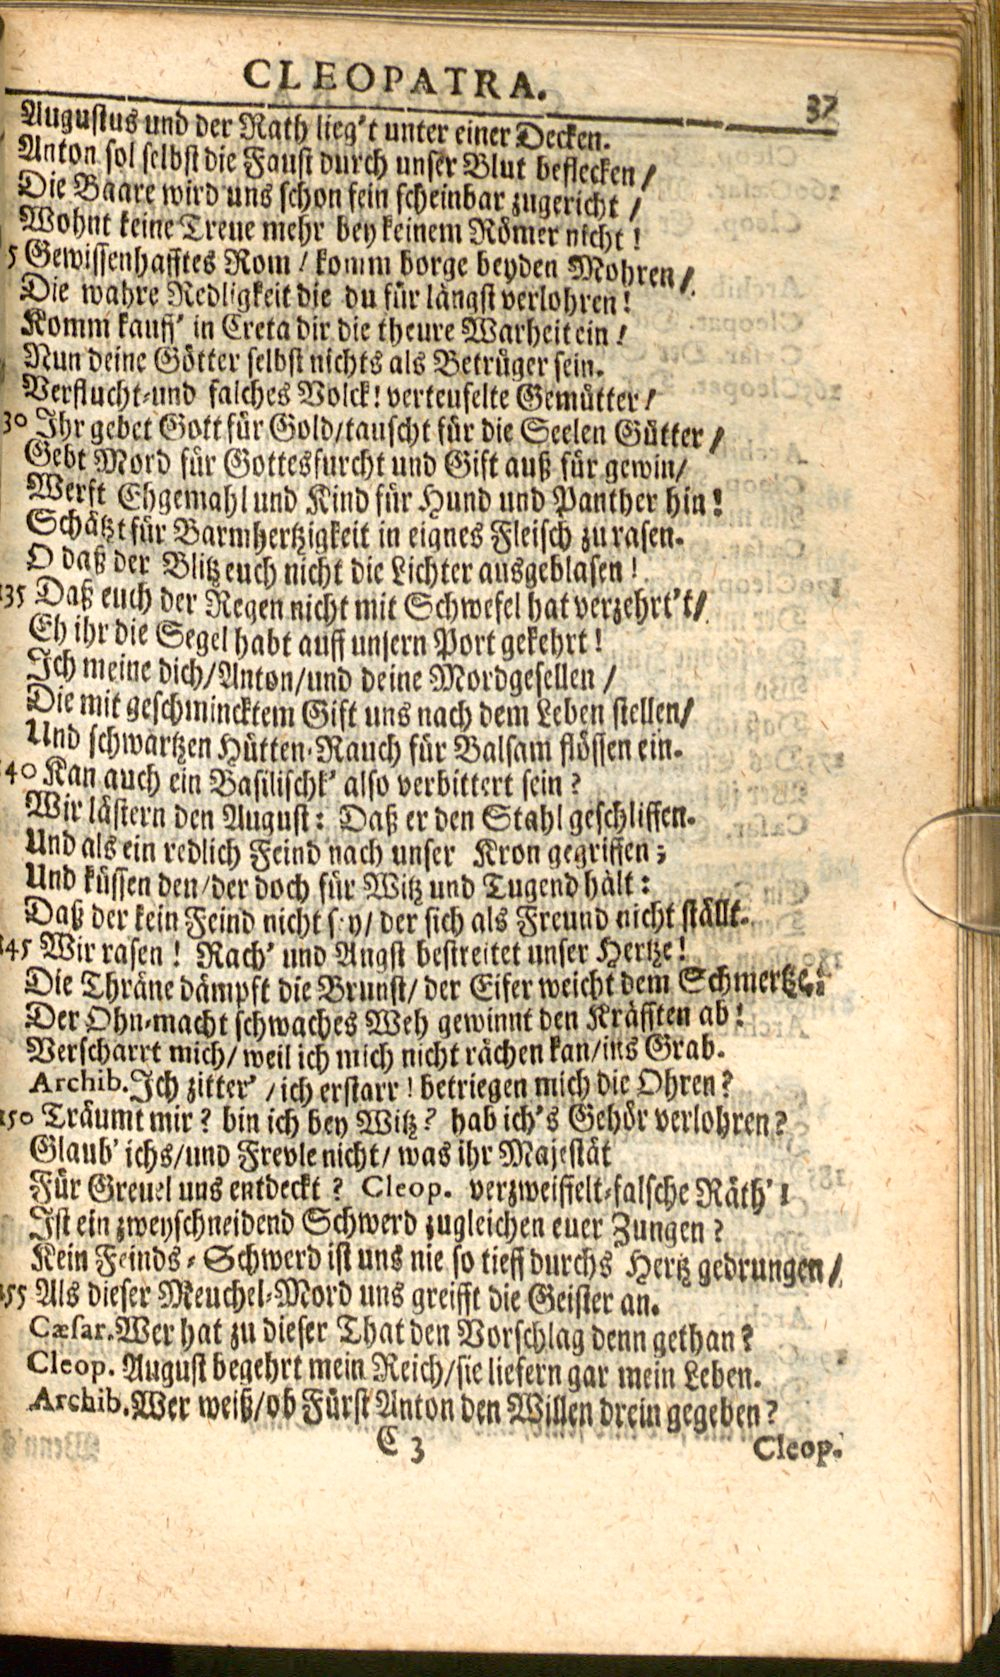 CLEOPATRA. 37
Augustus und der Rath lieg't unter einer Decken.
Anton sol selbst die Faust durch unser Blut beflecken /
Die Baare wird uns schon fein scheinbar zugericht /
Wohnt keine Treue mehr bey keinem Römer nicht !
5 Gewissenhafftes Rom / komm borge beyden Mohren /
Die wahre Redligkeit die du für längst verlohren !
Komm kauff' in Creta dir die theure Warheit ein /
Nun deine Götter selbst nichts als Betrüger sein.
Verflucht-und falsches Volck! verteufelte Gemütter /
30 Ihr gebet Gott für Gold/tauscht für die Seelen Gütter /
Gebt Mord für Gottesfurcht und Gift auß für gewin/
Werft Ehgemahl und Kind für Hund und Panther hin !
Schätzt für Barmhertzigkeit in eignes Fleisch zu rasen.
O daß der Blitz euch nicht die Lichter ausgeblasen !
135 Daß euch der Regen nicht mit Schwefel hat verzehrt't/
Eh ihr die Segel habt auff unsern Port gekehrt !
Ich meine dich/Anton/und deine Mordgesellen /
Die mit geschmincktem Gift uns nach dem Leben stellen/
Und schwartzen Hütten-Rauch für Balsam flössen ein.
140 Kan auch ein Basilischk' also verbittert sein ?
Wir lästern den August: Daß er den Stahl geschliffen.
Und als ein redlich Feind nach unser Kron gegriffen ;
Und küssen den/der doch für Witz und Tugend hält :
Daß der kein Feind nicht sey/ der sich als Freund nicht ställt.
145 Wir rasen ! Rach' und Angst bestreitet unser Hertze !
Die Thräne dämpft die Brunst/ der Eifer weicht dem Schmertze.
Der Ohn-macht schwaches Weh gewinnt den Kräfften ab !
Verscharrt mich/ weil ich mich nicht rächen kan/ins Grab.
Archib. Ich zitter' /ich erstarr ! betriegen mich die Ohren ?
150 Träumt mir ? bin ich bey Witz ? hab ich's Gehör verlohren ?
Glaub' ichs/und Frevle nicht/ was ihr Majestät
Für Greuel uns entdeckt ? Cleop. verzweiffelt-falsche Räth' !
Ist ein zweyschneidend Schwerd zugleichen euer Zungen ?
Kein Feinds-Schwerd ist uns nie so tieff durchs Hertz gedrungen /
155 Als dieser Meuchel-Mord uns greifft die Geister an.
Cæsar. Wer hat zu dieser That den Vorschlag denn gethan ?
Cleop. August begehrt mein Reich/sie liefern gar mein Leben.
Archib. Wer weiß/ob Fürst Anton den Willen drein gegeben ?
C 3 Cleop.